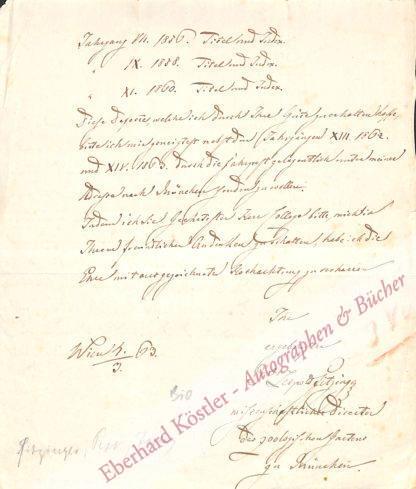 Jahrgang VII. 1856. Titel und Index.
" IX. 1858. Titel und Index.
" XI. 1860. Titel und Index.
Diese Defecte, welche ich durch Ihre Güte zu erhalten hoffe,
bitte ich mir geneigtest nebst den Jahrgängen XIII. 1862.
und XIV. 1863. durch die Fahrpost gelegentlich unter meiner
Adresse nach München senden zu wollen.
Indem ich Sie geehrtester Herr College bitte, mich in
Ihrem freundlichen Andenken zu behalten, habe ich die
Ehre mit ausgezeichneter Hochachtung zu verharren
Ihr
ergebenster
Leopold Fitzinger
wissenschaftlicher Director
des zoologischen Gartens
zu München.
Wien 4/3. 63.
Bio
Fitzinger,
Eberhard Köstler - Autographen & Bücher